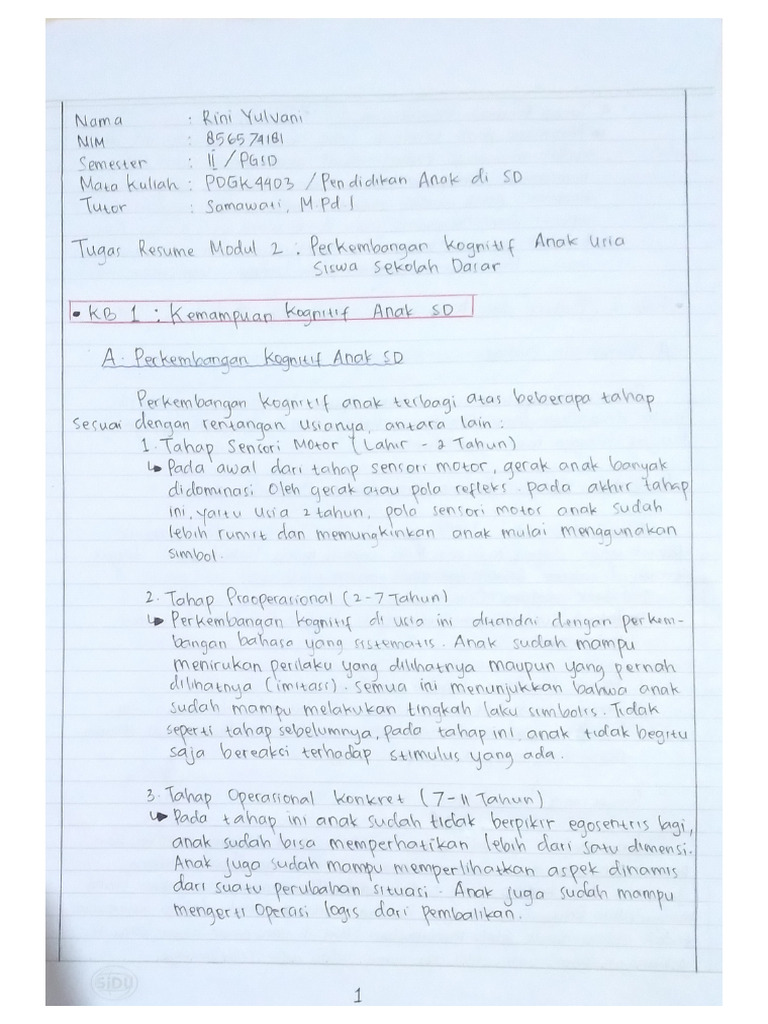 Nama : Rini Yulvani
NIM : 856574181
Semester : II / PGSD
Mata Kuliah : PDGK4403 / Pendidikan Anak di SD
Tutor : Samawati, M.Pd.I
Tugas Resume Modul 2 : Perkembangan Kognitif Anak Usia
Siswa Sekolah Dasar
• KB 1 : Kemampuan Kognitif Anak SD
A. Perkembangan Kognitif Anak SD
Perkembangan kognitif anak terbagi atas beberapa tahap
sesuai dengan rentangan usianya, antara lain :
1. Tahap Sensori Motor (Lahir - 2 Tahun)
↳ Pada awal dari tahap sensori motor, gerak anak banyak
didominasi oleh gerak atau pola refleks. pada akhir tahap
ini, yaitu usia 2 tahun, pola sensori motor anak sudah
lebih rumit dan memungkinkan anak mulai menggunakan
simbol.
2. Tahap Praoperasional (2-7 Tahun)
↳ Perkembangan kognitif di usia ini ditandai dengan perkem-
bangan bahasa yang sistematis. Anak sudah mampu
menirukan perilaku yang dilihatnya maupun yang pernah
dilihatnya (imitasi). semua ini menunjukkan bahwa anak
sudah mampu melakukan tingkah laku simbolis. Tidak
seperti tahap sebelumnya, pada tahap ini, anak tidak begitu
saja bereaksi terhadap stimulus yang ada.
3. Tahap Operasional Konkret (7-11 Tahun)
↳ Pada tahap ini anak sudah tidak berpikir egosentris lagi,
anak sudah bisa memperhatikan lebih dari satu dimensi.
Anak juga sudah mampu memperlihatkan aspek dinamis
dari suatu perubahan situasi. Anak juga sudah mampu
mengerti operasi logis dari pembalikan.
SIDU
1